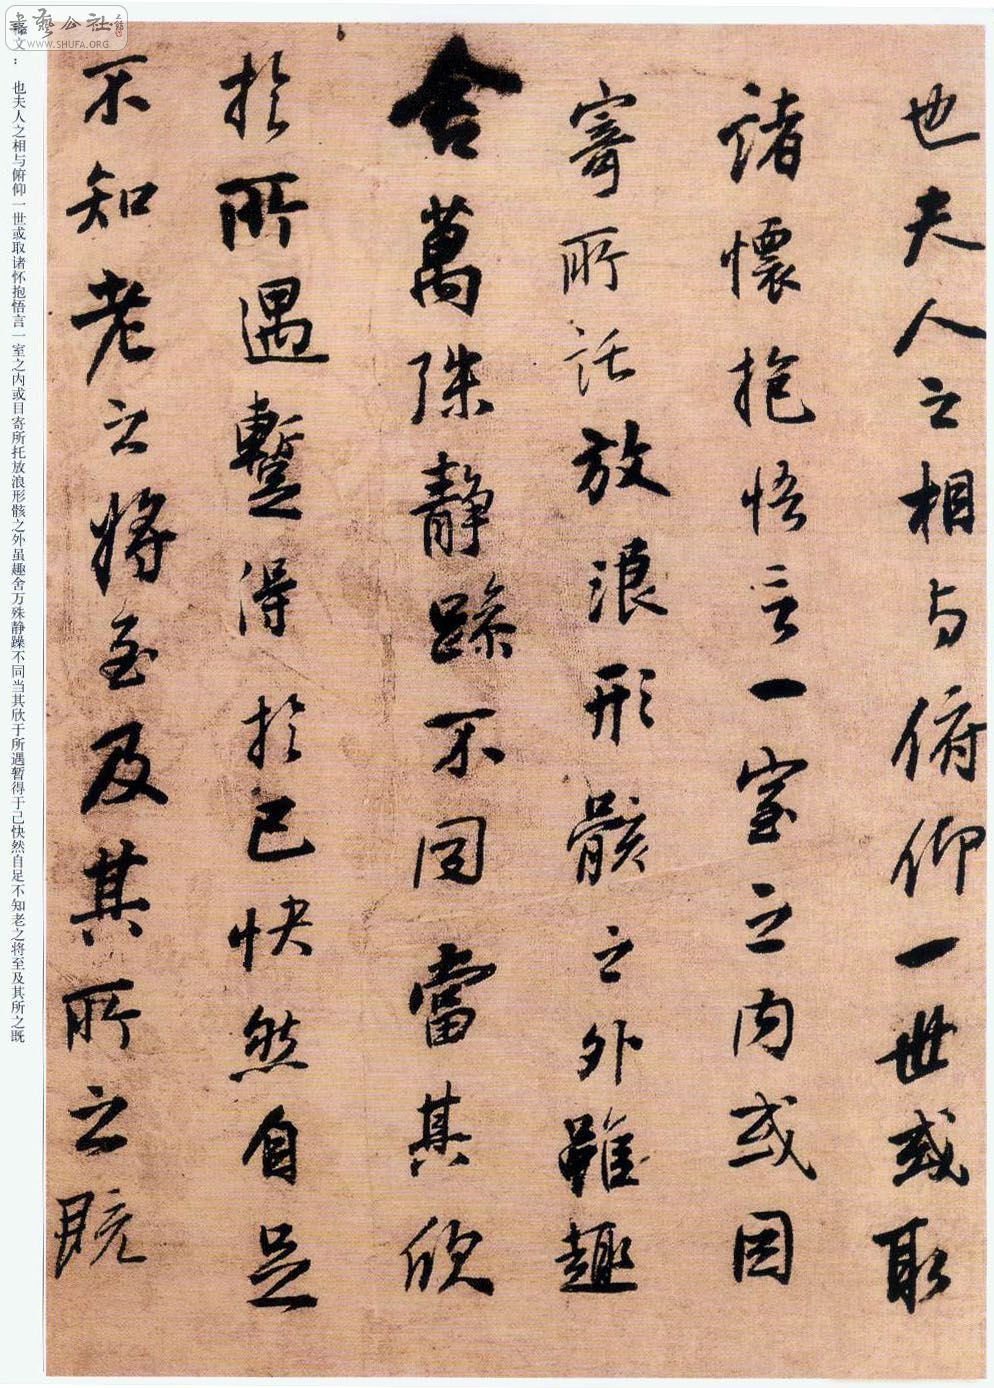 也夫人之相与俯仰一世或取
諸懷抱悟言一室之内或因
寄所託放浪形骸之外雖趣
舍萬殊静躁不同當其欣
於所遇蹔得於己快然自足
不知老之將至及其所之既
释文：也夫人之相与俯仰一世或取诸怀抱悟言一室之内或目寄所托放浪形骸之外虽趣舍万殊静躁不同当其欣于所遇暂得于己快然自足不知老之将至及其所之既
书艺公社
WWW.SHUFA.ORG